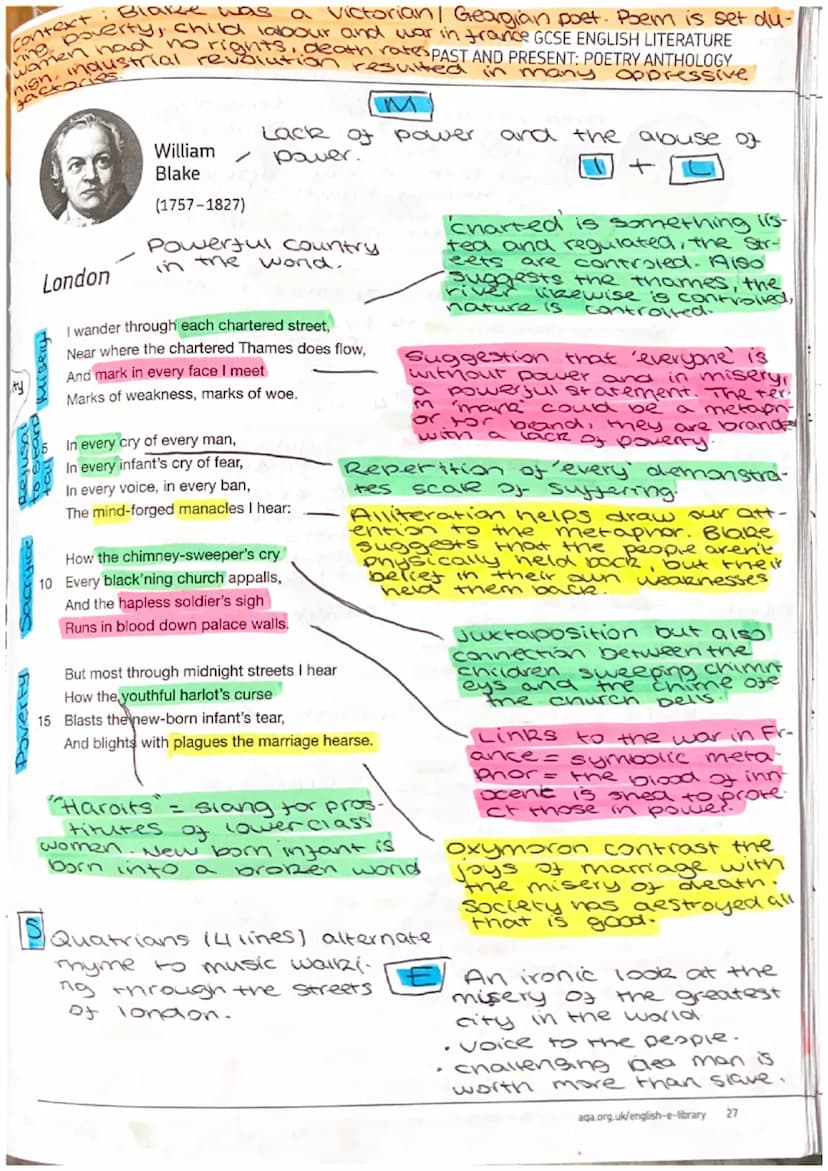 context : Blake was a Victorian/ Georgian poet. Poem is set du-
ring poverty, child labour and war in france
women had no rights, death rates
high, industrial revolution resulted in many oppressive
factories.
GCSE ENGLISH LITERATURE
PAST AND PRESENT: POETRY ANTHOLOGY
M
Lack of power and the abuse of
power.
I + L
William
Blake
(1757–1827)
Powerful country
in the world.
London
'charted' is something lis-
ted and regulated, the str-
eets are controled. Also
suggests the thames, the
river likewise is controlled,
nature is controlled.
Misery
I wander through each chartered street,
Near where the chartered Thames does flow,
And mark in every face I meet
Marks of weakness, marks of woe.
ty
Suggestion that 'everyone' is
without power and in misery,
a powerful statement. The ter-
m 'mark' could be a metaph-
or for brand, they are brande
with a lack of poverty.
Refusal
to stand
5
In every cry of every man,
In every infant's cry of fear,
In every voice, in every ban,
The mind-forged manacles I hear:
Repetition of 'every' demonstra-
tes scale of suffering.
Alliteration helps draw our att-
ention to the metaphor. Blake
suggests that the people aren't
physically held back, but their
belief in their own weaknesses
held them back.
Sacrifice
How the chimney-sweeper's cry
10 Every black'ning church appalls,
And the hapless soldier's sigh
Runs in blood down palace walls.
Juxtaposition but also
connection between the
children sweeping chimn
eys and the chime of
the church bells.
Poverty
But most through midnight streets I hear
How the youthful harlot's curse
15 Blasts the new-born infant's tear,
And blights with plagues the marriage hearse.
Links to the war in Fr-
ance = symbolic meta-
phor = the blood of inn-
ocent is shed to prote-
ct those in power.
"Harolts" = slang for pros-
titutes of lower class
women. New born infant is
born into a broken world
Oxymoron contrast the
joys of marriage with
the misery of death.
Society has destroyed all
that is good.
S
Quatrians (4 lines) alternate
rhyme to music walki-
ng through the streets
of london.
E
An ironic look at the
misery of the greatest
city in the world.
• Voice to the people.
• challenging idea man is
worth more than slave.
aqa.org.uk/english-e-library 27